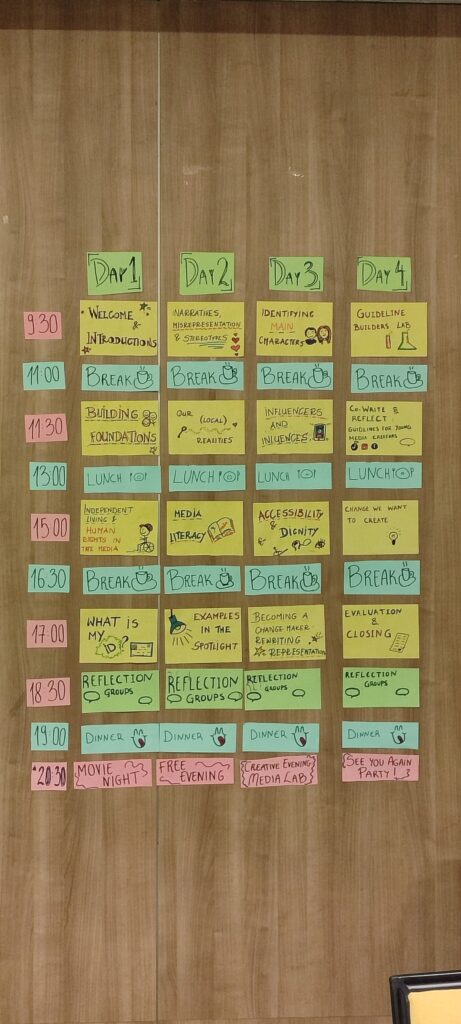 DAY 1
DAY 2
DAY 3
DAY 4
9:30
WELCOME
&
INTRODUCTIONS
NARRATIVES,
MISREPRESENTATION
& STEREOTYPES
IDENTIFYING
MAIN
CHARACTERS
GUIDELINE
BUILDERS LAB
11:00
BREAK
BREAK
BREAK
BREAK
11:30
BUILDING
FOUNDATIONS
OUR
(LOCAL)
REALITIES
INFLUENCERS
AND
INLUENCES
CO-WRITE &
REFLECT
GUIDELINES FOR YOUNG
MEDIA CREATORS
13:00
LUNCH
LUNCH
LUNCH
LUNCH
15:00
INDEPENDENT
LIVING &
HUMAN
RIGHTS IN
THE MEDIA
MEDIA
LITERACY
ACCESSIBILITY
&
DIGNITY
CHANGE WE WANT
TO CREATE
16:30
BREAK
BREAK
BREAK
BREAK
17:00
WHAT IS
MY
ID?
EXAMPLES
IN THE
SPOTLIGHT
BECOMING A
CHANGE MAKER
REWRITING
REPRESENTATION
EVALUATION
&
CLOSING
18:30
REFLECTION
GROUPS
REFLECTION
GROUPS
REFLECTION
GROUPS
REFLECTION
GROUPS
19:00
DINNER
DINNER
DINNER
DINNER
20:30
MOVIE
NIGHT
FREE
EVENING
CREATIVE EVENING
MEDIA LAB
SEE YOU AGAIN
PARTY!